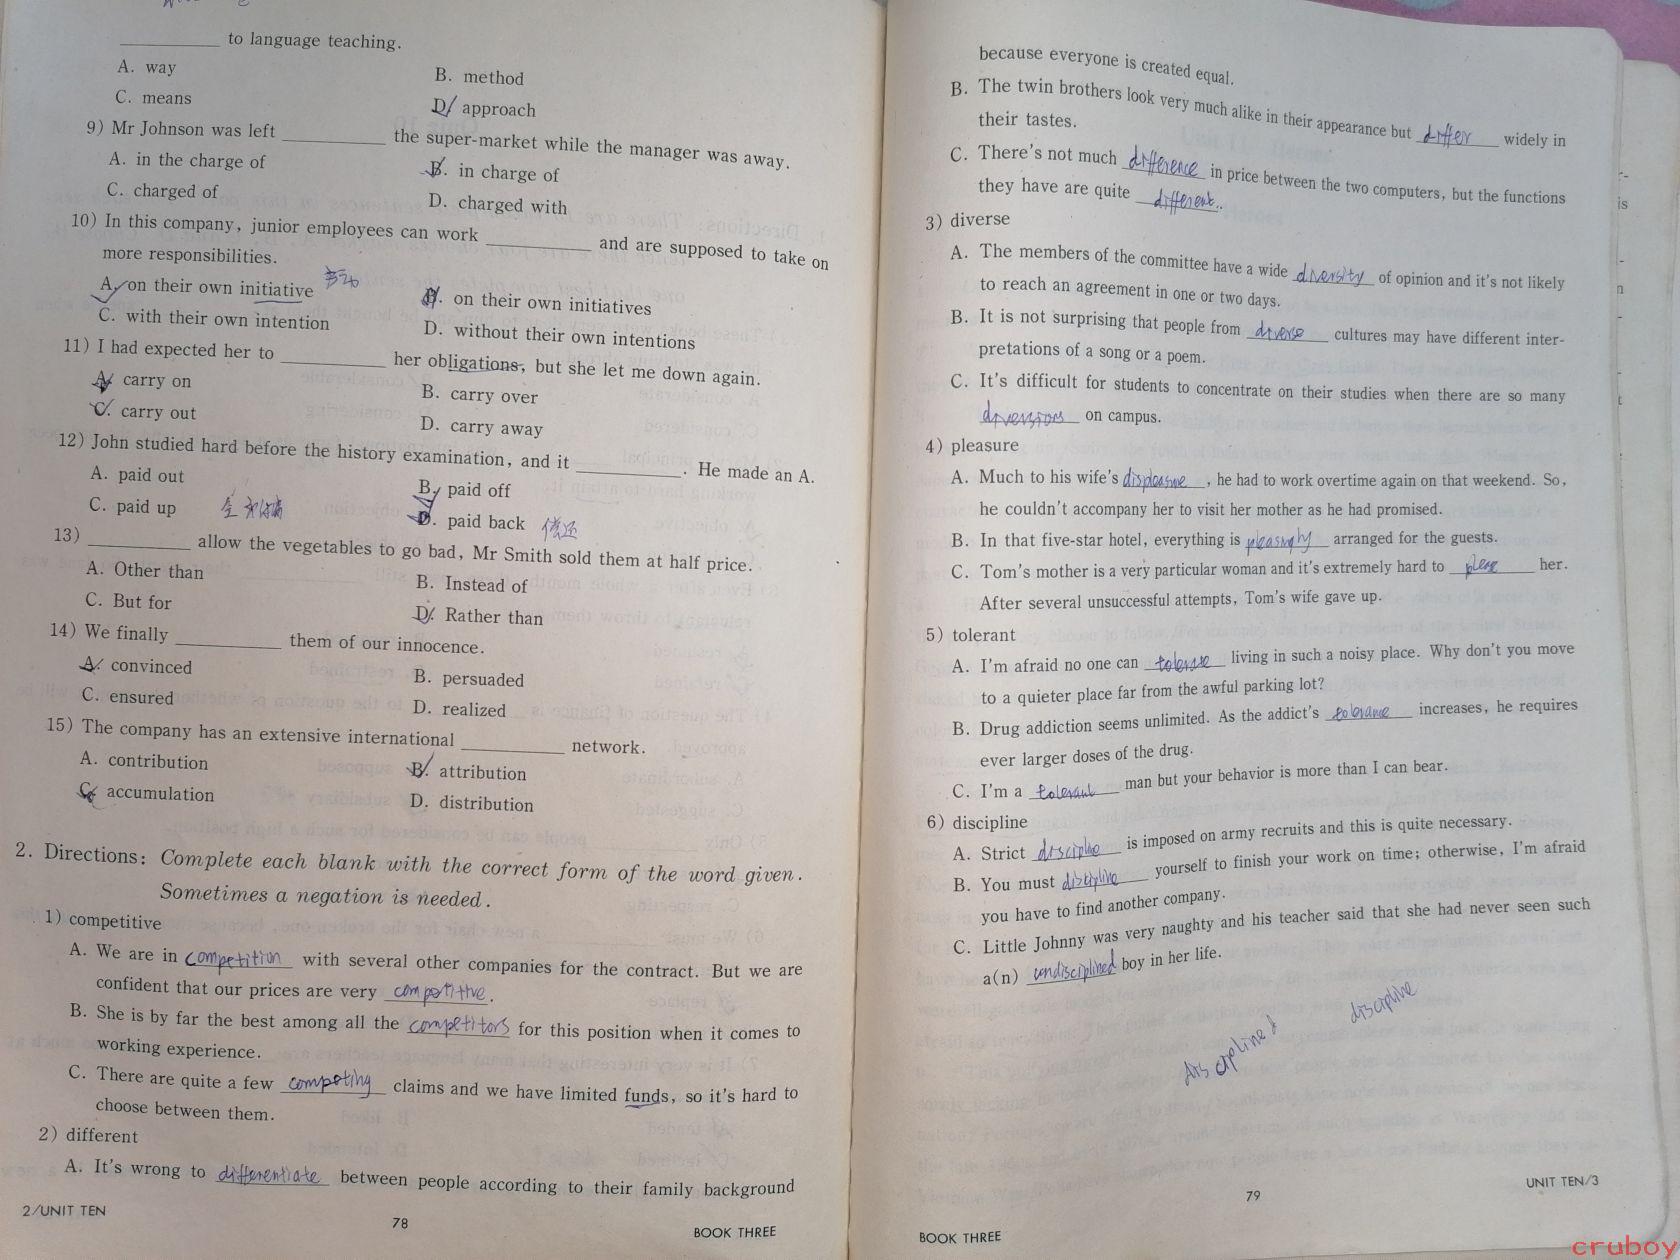 ________ to language teaching.
A. way
B. method
C. means
D. approach
9) Mr Johnson was left ________ the super-market while the manager was away.
A. in the charge of
B. in charge of
C. charged of
D. charged with
10) In this company, junior employees can work ________ and are supposed to take on
more responsibilities.
A. on their own initiative
B. on their own initiatives
C. with their own intention
D. without their own intentions
11) I had expected her to ________ her obligations, but she let me down again.
A. carry on
B. carry over
C. carry out
D. carry away
12) John studied hard before the history examination, and it ________. He made an A.
A. paid out
B. paid off
C. paid up
D. paid back 偿还
13) ________ allow the vegetables to go bad, Mr Smith sold them at half price.
A. Other than
B. Instead of
C. But for
D. Rather than
14) We finally ________ them of our innocence.
A. convinced
B. persuaded
C. ensured
D. realized
15) The company has an extensive international ________ network.
A. contribution
B. attribution
C. accumulation
D. distribution
2. Directions: Complete each blank with the correct form of the word given.
Sometimes a negation is needed.
1) competitive
A. We are in competition with several other companies for the contract. But we are
confident that our prices are very competitive.
B. She is by far the best among all the competitors for this position when it comes to
working experience.
C. There are quite a few competing claims and we have limited funds, so it's hard to
choose between them.
2) different
A. It's wrong to differentiate between people according to their family background
2/UNIT TEN
78
BOOK THREE
because everyone is created equal.
B. The twin brothers look very much alike in their appearance but differ widely in
their tastes.
C. There's not much difference in price between the two computers, but the functions
they have are quite different.
3) diverse
A. The members of the committee have a wide diversity of opinion and it's not likely
to reach an agreement in one or two days.
B. It is not surprising that people from diverse cultures may have different inter-
pretations of a song or a poem.
C. It's difficult for students to concentrate on their studies when there are so many
diversions on campus.
4) pleasure
A. Much to his wife's displeasure, he had to work overtime again on that weekend. So,
he couldn't accompany her to visit her mother as he had promised.
B. In that five-star hotel, everything is pleasingly arranged for the guests.
C. Tom's mother is a very particular woman and it's extremely hard to please her.
After several unsuccessful attempts, Tom's wife gave up.
5) tolerant
A. I'm afraid no one can tolerate living in such a noisy place. Why don't you move
to a quieter place far from the awful parking lot?
B. Drug addiction seems unlimited. As the addict's tolerance increases, he requires
ever larger doses of the drug.
C. I'm a tolerant man but your behavior is more than I can bear.
6) discipline
A. Strict discipline is imposed on army recruits and this is quite necessary.
B. You must discipline yourself to finish your work on time; otherwise, I'm afraid
you have to find another company.
C. Little Johnny was very naughty and his teacher said that she had never seen such
a(n) undisciplined boy in her life.
disciplined
discipline
79
UNIT TEN/3
BOOK THREE
cruboy